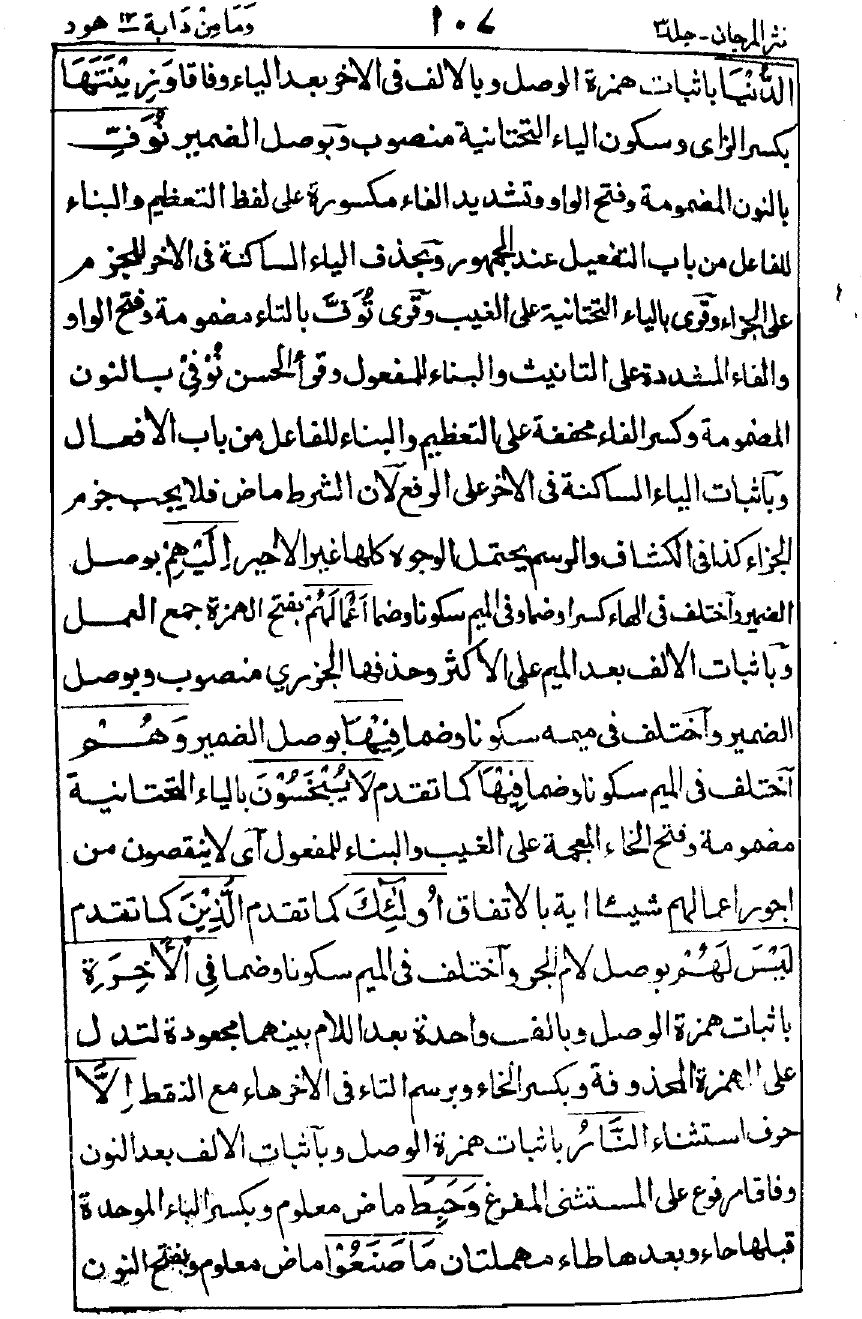 نثر المرجان - جلد ٣ ١٠٧ وَمَا مِنْ دَابة ١٢ هود
الدُّنْيَا باثبات همزة الوصل وبالالف فى الاخر بعد الياء وفاقا وَزِيْنَتَهَا
بكسر الزاى وسكون الياء التحتانية منصوب وبوصل الضمير نُوَفِّ
بالنون المضمومة وفتح الواو وتشديد الفاء مكسورة على لفظ التعظيم والبناء
للفاعل من باب التفعيل عند الجمهور وبحذف الياء الساكنة فى الاخر للجزم
على الجزاء وقرى بالياء التحتانية على الغيب وقرى تُوَفَّ بالتاء مضمومة وفتح الواو
والفاء المشددة على التانيث والبناء للمفعول وقرأ الحسن نُوْفِيْ بالنون
المضمومة وكسر الفاء مخففة على التعظيم والبناء للفاعل من باب الافعال
وباثبات الياء الساكنة فى الاخر على الرفع لان الشرط ماض فلا يجب جزم
الجزاء كذا فى الكشاف والرسم يحتمل الوجوه كلها غير الاخير اِلَيْهِمْ بوصل
الضمير واختلف فى الهاء كسرا وضما وفى الميم سكونا وضما اَعْمَالَهُمْ بفتح الهمزة جمع العمل
وباثبات الالف بعد الميم على الاكثر وحذفها الجزري منصوب وبوصل
الضمير واختلف فى ميمه سكونا وضما فِيْهَا بوصل الضمير وَهُمْ
اختلف فى الميم سكونا وضما فِيْهَا كما تقدم لَا يُبْخَسُوْنَ بالياء التحتانية
مضمومة وفتح الخاء المعجمة على الغيب والبناء للمفعول اى لا ينقصون من
اجور اعمالهم شيئا اية بالاتفاق اُولٰٓئِكَ كما تقدم الَّذِيْنَ كما تقدم
لَيْسَ لَهُمْ بوصل لام الجر واختلف فى الميم سكونا وضما فِي الْاٰخِرَةِ
باثبات همزة الوصل وبالف واحدة بعد اللام بينهما مجعودة لتدل
على الهمزة المحذوفة وبكسر الخاء وبرسم التاء فى الاخر هاء مع النقط اِلَّا
حرف استثناء النَّارُ باثبات همزة الوصل وباثبات الالف بعد النون
وفاقا مرفوع على المستثنى المفرغ وَحَبِطَ ماض معلوم وبكسر الباء الموحدة
قبلها حاء وبعدها طاء مهملتان مَا صَنَعُوْا ماض معلوم وبفتح النون